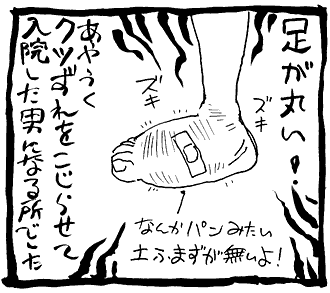 足が丸い!
ズキ
ズキ
なんかパンみたい
土ふまずが無いよ!
あやうく
クツずれをこじらせて
入院した男になる所でした